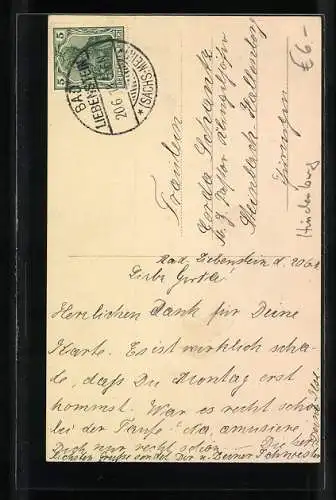 5 5
BAD
LIEBENSTEIN
20.6.
* (SACHS.-MEIN.
€6–
Fräulein
Gerda Schantz
Steinbach-Hallenberg
Thüringen
Bad Liebenstein d. 20.6.
Liebe Gerda!
Herzlichen Dank für Deine
Karte. Es ist wirklich scha-
de, daß Du Montag erst
kommst. War es recht schön
bei der Taufe? Na, amusiere
Dich nur recht schön.
Grüße sendet Dir u. Deiner Schwester